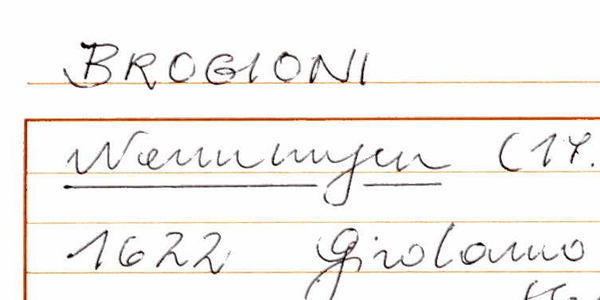 BROGIONI
Nennungen (17.
1622 Girolamo